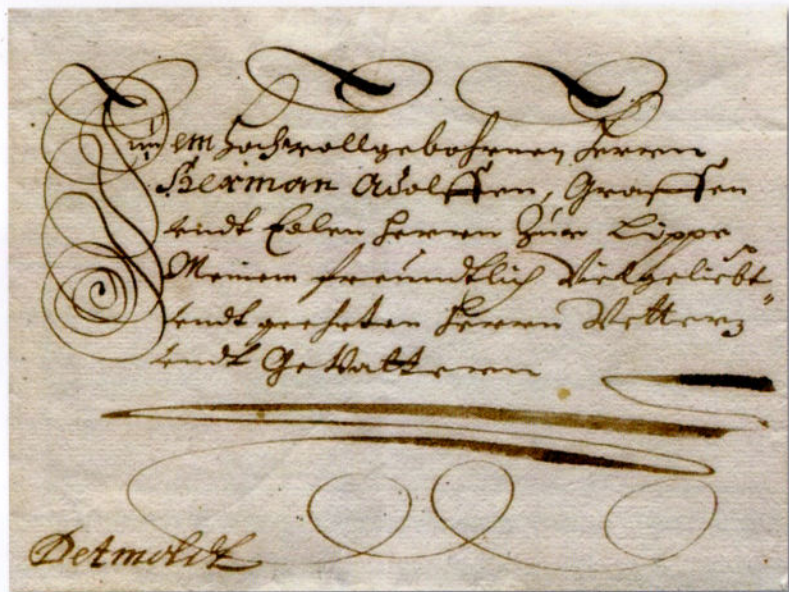 Dem Hochwollgebohrnen Herrn
Herman Adolffen, Graffen
undt Edlen Herrn Zur Lippe,
Meinem freundtlich Vielgeliebt
undt geehrten Herrn Vettern
undt GeVattern
Detmoldt